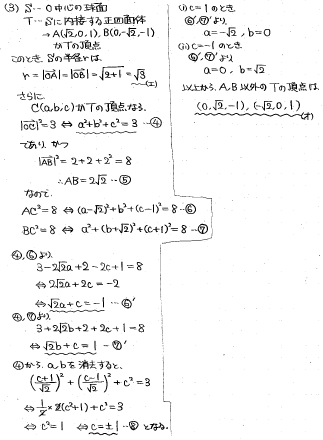 (3) S…O中心の球面
T…Sに内接する正四面体
→A(√2,0,1), B(0,-√2,-1)
がTの頂点
このとき、Sの半径rは、
r=|OA|=|OB|=√2+1=√3
(エ)
さらに
C(a,b,c)がTの頂点なる
|OC|²=3 ⇔ a²+b²+c²=3 …④
であり、かつ
|AB|²=2+2+2²=8
∴AB=2√2 …⑤
なので、
AC²=8 ⇔ (a-√2)²+b²+(c-1)²=8 …⑥
BC²=8 ⇔ a²+(b+√2)²+(c+1)²=8 …⑦
④,⑥より、
3-2√2a+2-2c+1=8
⇔ 2√2a+2c=-2
⇔ √2a+c=-1 …⑥'
④,⑦より、
3+2√2b+2+2c+1=8
⇔ √2b+c=1 …⑦'
④からa,bを消去すると、
((c+1)/√2)²+((c-1)/√2)²+c²=3
⇔ 1/2×2(c²+1)+c²=3
⇔ c²=1 ⇔ c=±1 …⑧ となる。
(i) c=1のとき
⑥',⑦'より、
a=-√2, b=0
(ii) c=-1のとき
⑥',⑦'より、
a=0, b=√2
以上から、A,B以外のTの頂点は、
(0,√2,-1), (-√2,0,1)
(オ)